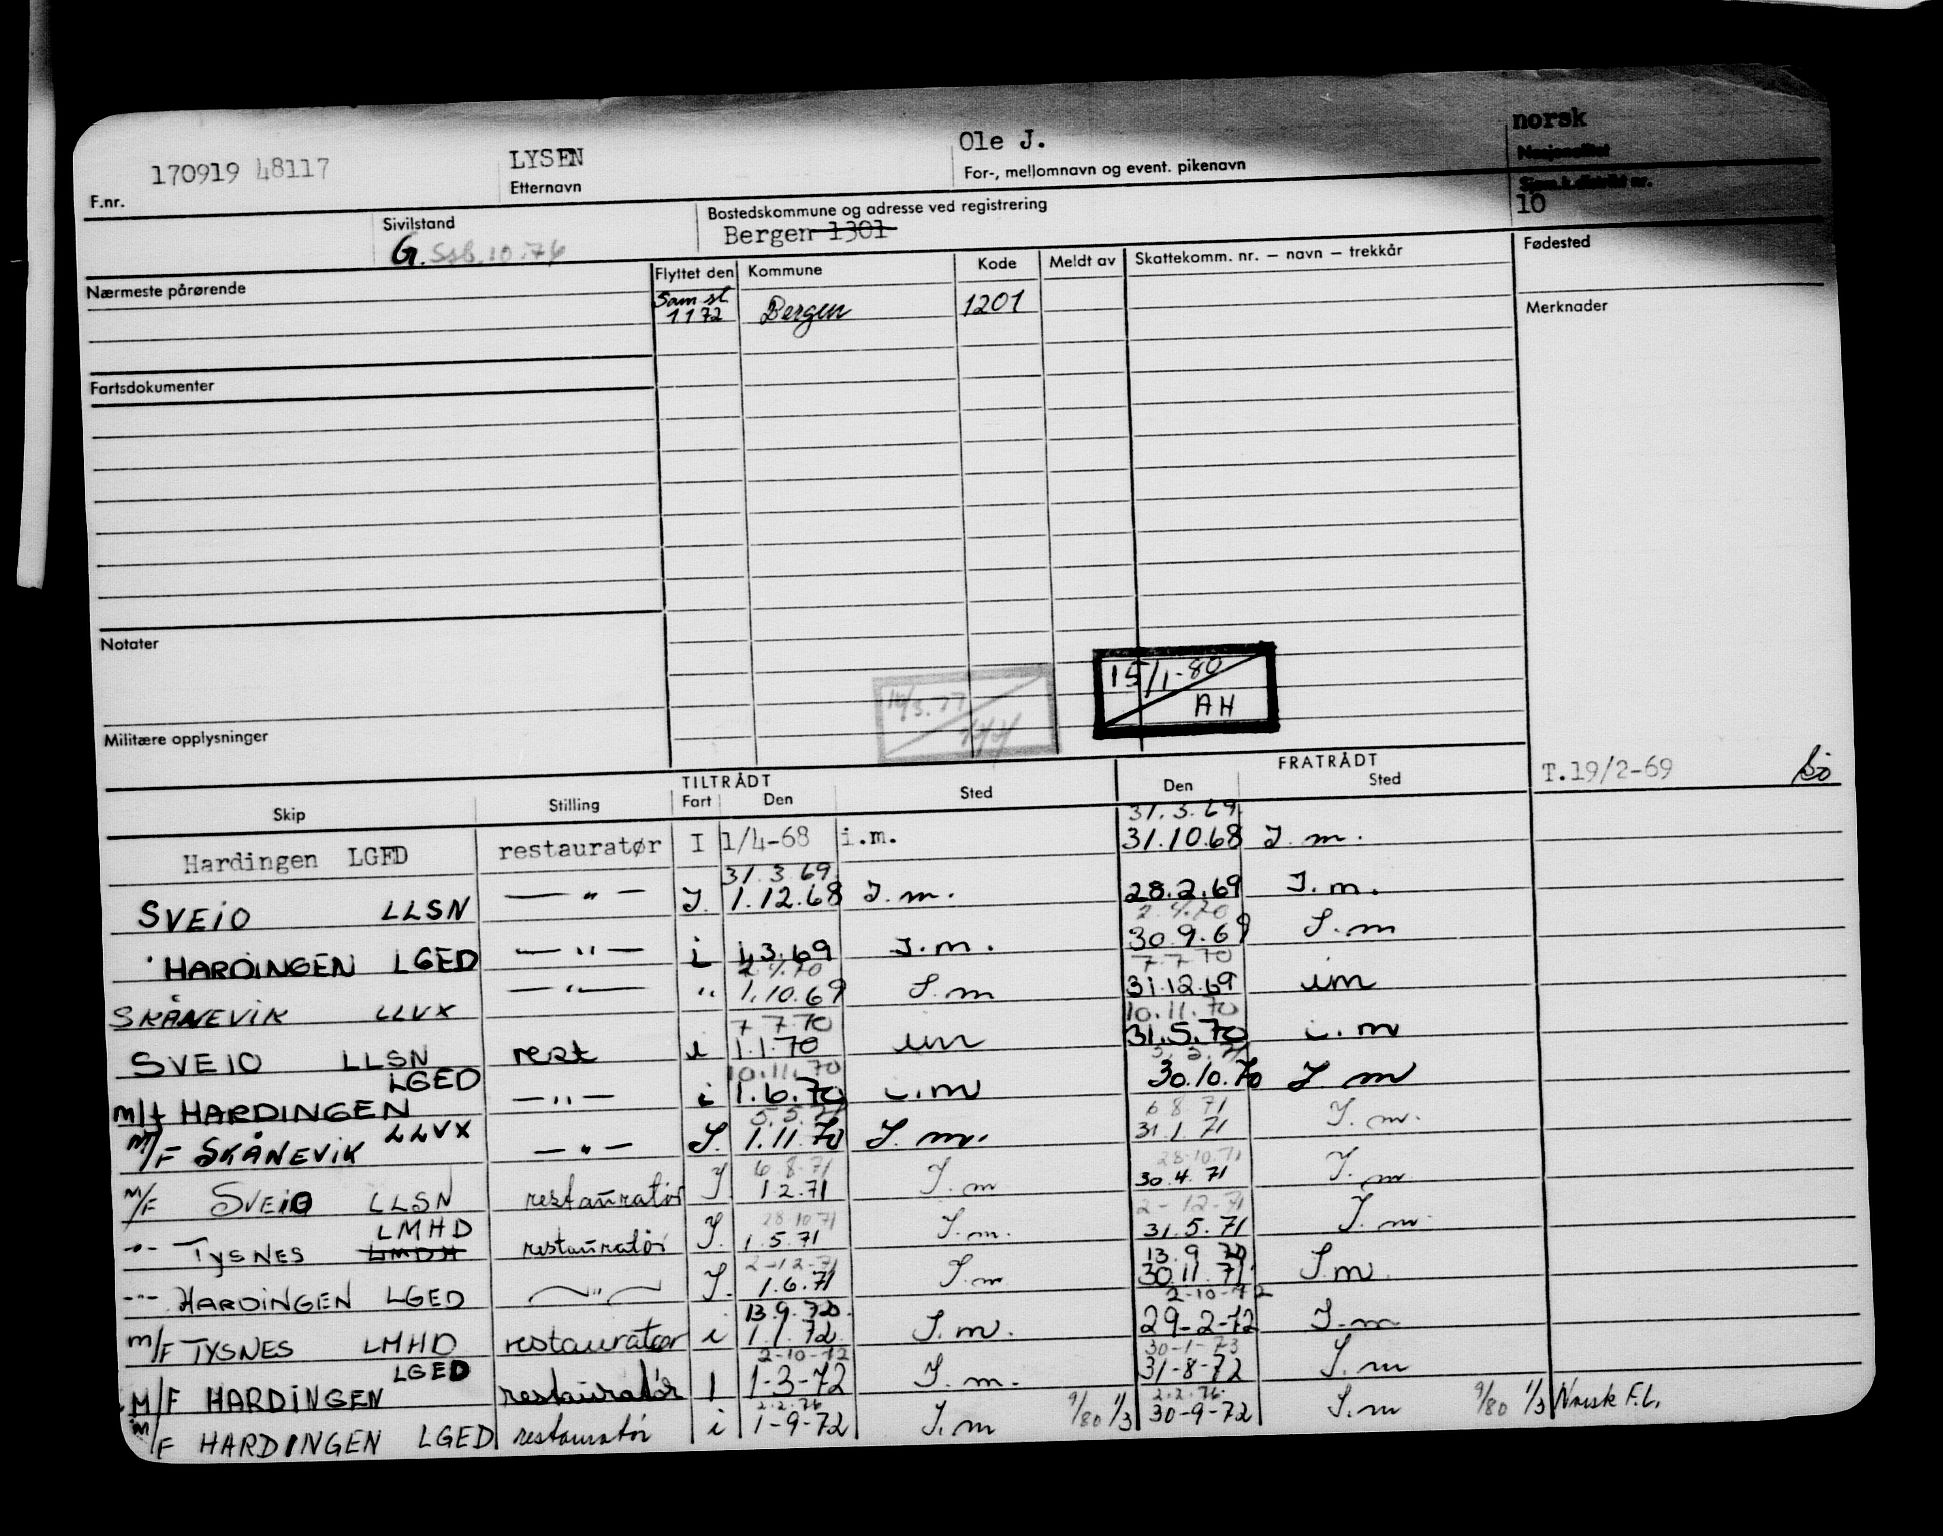 norsk
Nasjonalitet
170919 48117 LYSEN Ole J.
F.nr. Etternavn For-, mellomnavn og event. pikenavn
Sjøm.k.distrikt nr.
10
Sivilstand Bostedskommune og adresse ved registrering
G. Ssb. 10.76 Bergen 1301
Nærmeste pårørende Flyttet den Kommune Kode Meldt av Skattekomm. nr. — navn — trekkår Fødested
Sam.sl
1 1 72 Bergen 1201
Merknader
Fartsdokumenter
Notater
15/1-80
AH
Militære opplysninger
TILTRÅDT FRATRÅDT
T.19/2-69
Skip Stilling Fart Den Sted Den Sted
31.3.69
Hardingen LGED restauratør I 1/4-68 i.m. 31.10.68 I. m.
31.3.69
SVEIO LLSN — " — I. 1.12.68 I.m. 28.2.69 I.m.
2.4.70
HARDINGEN LGED — " — i 1.3.69 I.m. 30.9.69 I.m
2.4.70 7.7.70
SKÅNEVIK LLVX — " — " 1.10.69 I.m 31.12.69 im
7.7.70 10.11.70
SVEIO LLSN rest i 1.1.70 im 31.5.70 i.m
LGED 10.11.70
m/f HARDINGEN — " — i 1.6.70 i.m 30.10.70 I m
LLVX 5.5.71 6.8.71
M/F SKÅNEVIK — " — I. 1.11.70 I. m. 31.1.71 I.m.
6.8.71 28.10.71
M/F SVEIO LLSN restauratør I. 1.2.71 I.m 30.4.71 I.m
LMHD 28.10.71 2-12-71
-"- TYSNES LMDH restauratør I. 1.5.71 I.m. 31.5.71 I.m
2-12-71 13.9.72
-"- HARDINGEN LGED — " — I. 1.6.71 I.m 30.11.71 I.m
13.9.72. 2-10-72
m/F TYSNES LMHD restauratør i 1.1.72. I.m. 29-2-72 I.m
LGED 2-10-72 30-1-73
M/F HARDINGEN restauratør I 1-3-72 I.m. 31-8-72 I.m
2.2.76 2.2.76
M/F HARDINGEN LGED restauratør i 1-9-72 I.m 9/80 1/3 30-9-72 I.m 9/80 1/3 Norsk F.L.